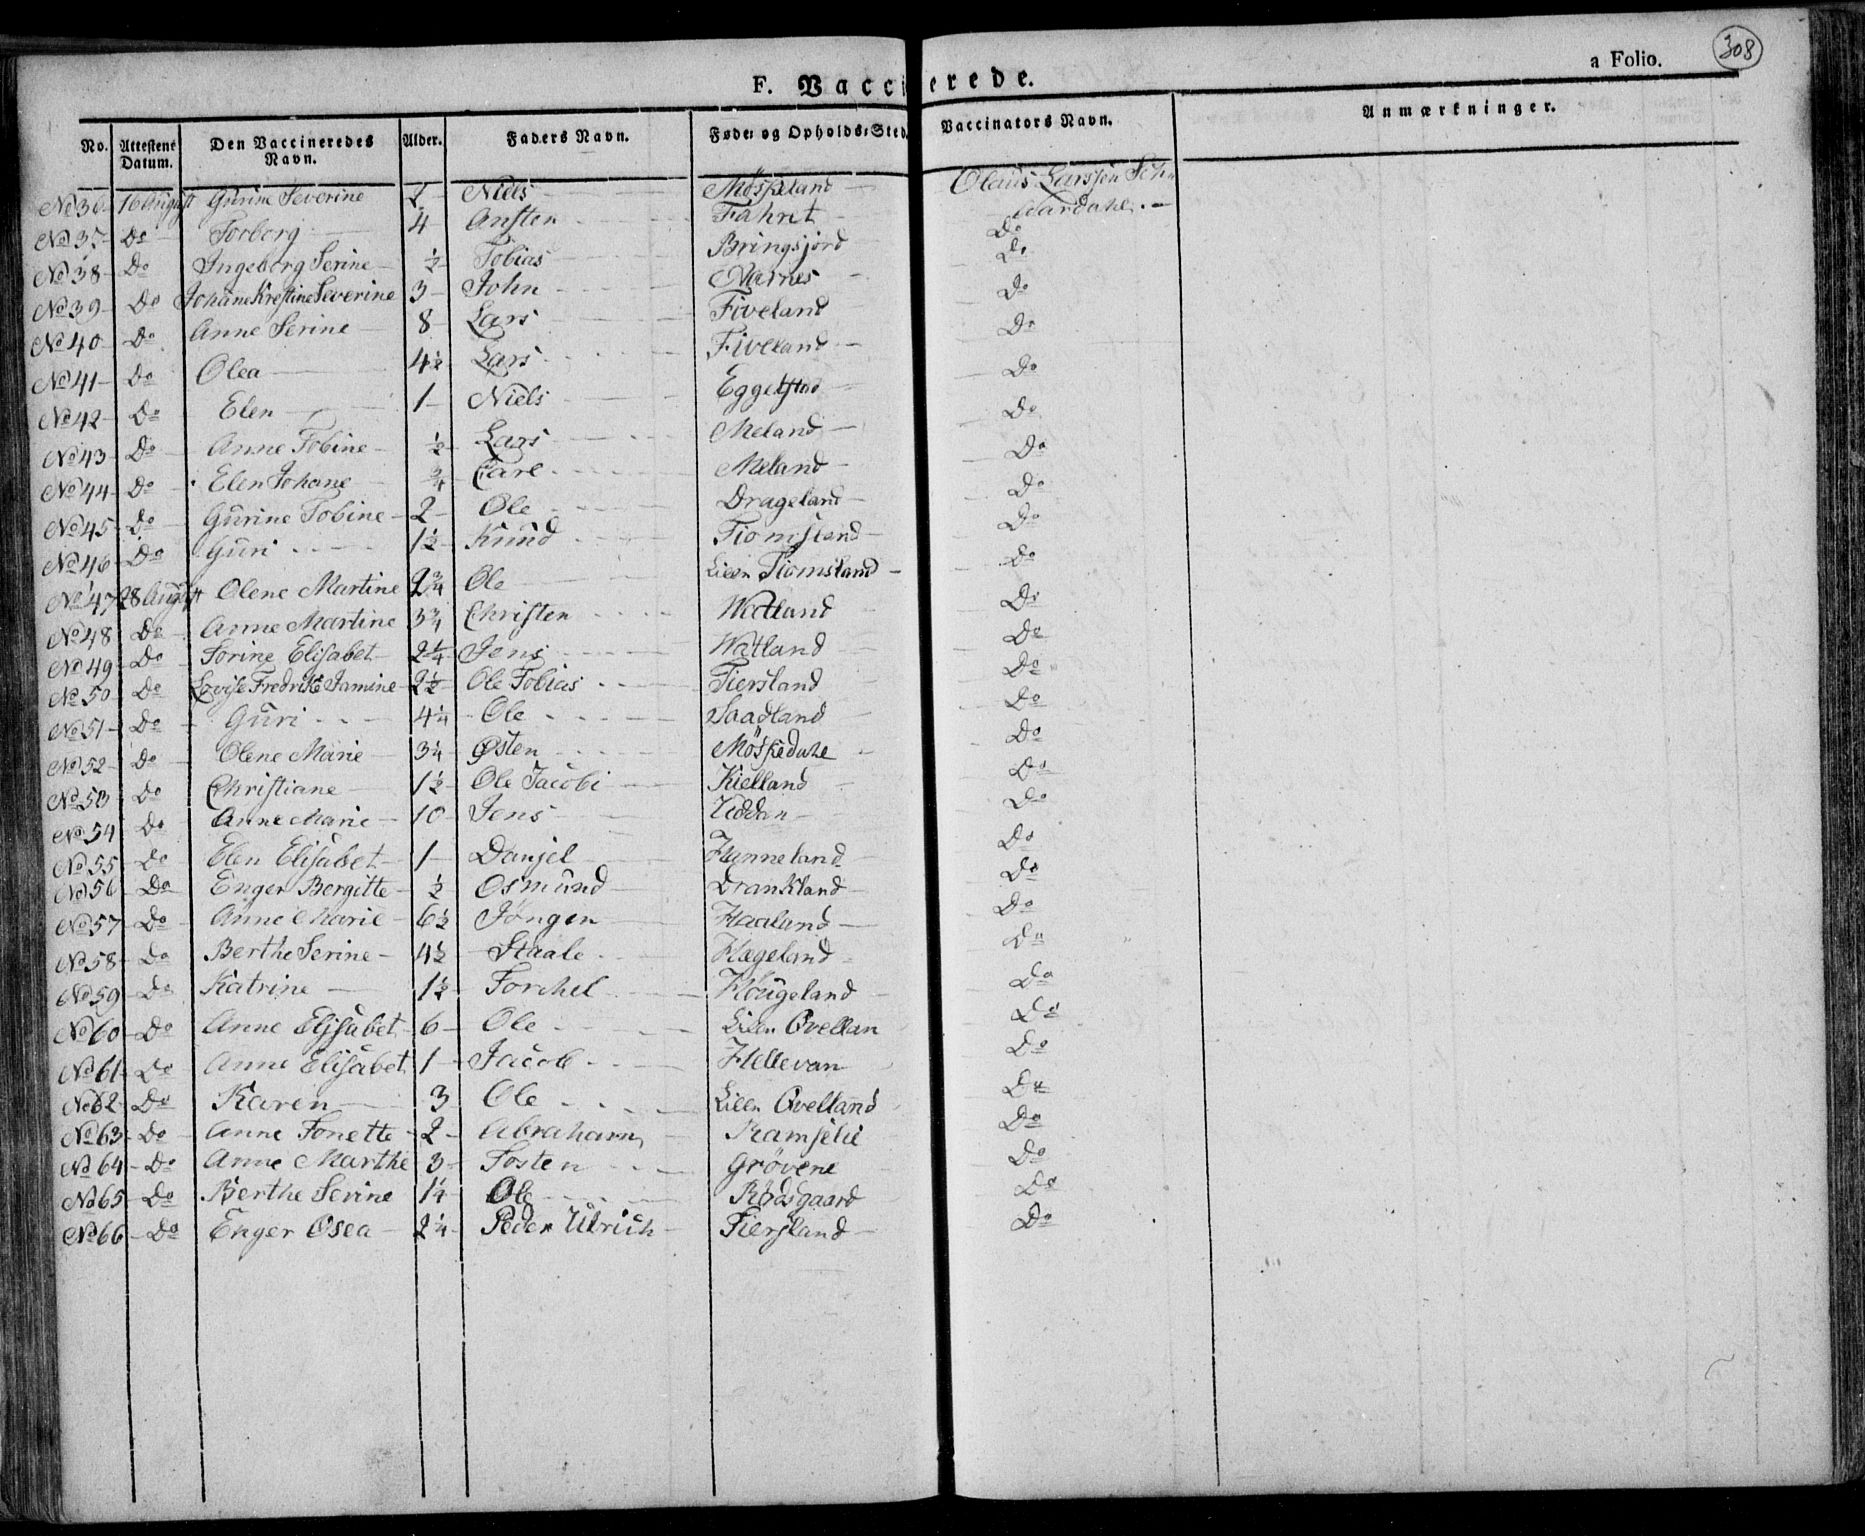 308
F. Vaccinerede.
a Folio.
No. Attestens Datum. Den Vaccineredes Navn. Alder. Faders Navn. Føde- og Opholds-Sted. Vaccinators Navn. Anmærkninger.
No 36 16 August Gurine Severine 2 Niels Møskeland Olaus Larssen
No 37 Do Torborg 4 Ansten Do
No 38 Do Ingeborg Serine ½ Tobias Bringsjord Do
No 39 Do Johane Krestine Severine 3 John Narnes Do
No 40 Do Anne Serine 8 Lars Fiveland Do
No 41 Do Olea 4½ Lars Fiveland Do
No 42 Do Elen 1 Niels Eggelstad Do
No 43 Do Anne Tobine ½ Lars Meland Do
No 44 Do Elen Johane ¾ Carl Meland Do
No 45 Do Gurine Tobine 2 Ole Drageland Do
No 46 Do Guri 1½ Knud Tiomsland Do
No 47 28 August Olene Martine 2¾ Ole Lille Tiomsland Do
No 48 Do Anne Martine 3¾ Christen Watland Do
No 49 Do Sorine Elisabet 2¼ Jens Watland Do
No 50 Do Lovise Fredrike Jamine 2½ Ole Tobias Tiersland Do
No 51 Do Guri 4¼ Ole Saadland Do
No 52 Do Olene Marie 3¼ Østen Møskedahl Do
No 53 Do Christiane 1½ Ole Jacobi Kielland Do
No 54 Do Anne Marie 10 Jens Do
No 55 Do Elen Elisabet 1 Danjel Hanneland Do
No 56 Do Enger Bergitte ½ Osmund Drankland Do
No 57 Do Anne Marie 6½ Jøngen Haaland Do
No 58 Do Berthe Serine 4½ Staale Hægeland Do
No 59 Do Katrine 1½ Torchel Hougeland Do
No 60 Do Anne Elisabet 6 Ole Lille Qvellan Do
No 61 Do Anne Elisabet 1 Jacob Hellevan Do
No 62 Do Karen 3 Ole Lille Qvelland Do
No 63 Do Anne Tonette 2 Abraham Ramselie Do
No 64 Do Anne Marthe 3 Tosten Grøvene Do
No 65 Do Berthe Serine 1¼ Ole Rødsgaard Do
No 66 Do Enger Osea 2¼ Peder Ulrich Tiersland Do